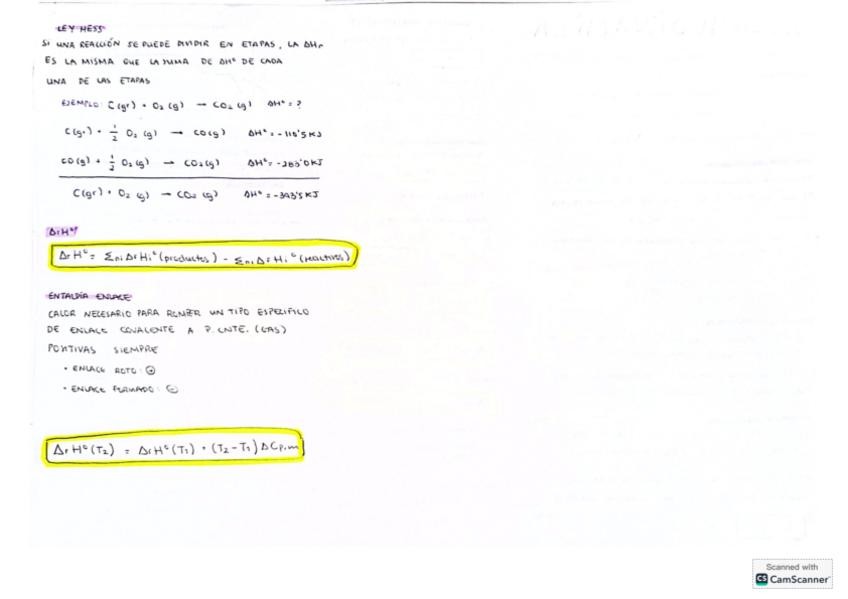 LEY HESS
SI UNA REACCIÓN SE PUEDE DIVIDIR EN ETAPAS, LA ΔHr
ES LA MISMA QUE LA SUMA DE ΔH° DE CADA
UNA DE LAS ETAPAS
EJEMPLO: C(gr) + O2 (g) → CO2 (g) ΔH° = ?
C(gr) + 1/2 O2 (g) → CO(g) ΔH° = -110'5 KJ
CO(g) + 1/2 O2 (g) → CO2(g) ΔH° = -283'0 KJ
C(gr) + O2 (g) → CO2 (g) ΔH° = -393'5 KJ
ΔrH°
ΔrH° = Σni ΔfHi° (productos) - Σni ΔfHi° (reactivos)
ENTALPÍA ENLACE
CALOR NECESARIO PARA ROMPER UN TIPO ESPECÍFICO
DE ENLACE COVALENTE A P. CNTE. (GAS)
POSITIVAS SIEMPRE
• ENLACE ROTO: ⊕
• ENLACE FORMADO: ⊖
ΔrH°(T2) = ΔrH°(T1) + (T2-T1) ΔCp,m
Scanned with
CS CamScanner